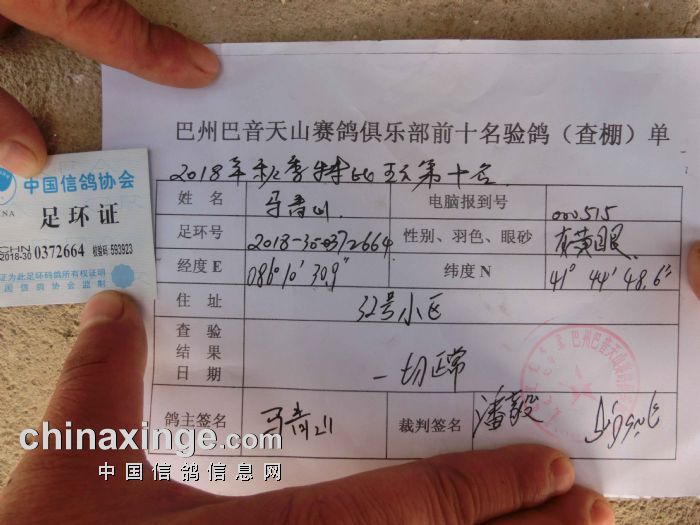 巴州巴音天山赛鸽俱乐部前十名验鸽（查棚）单
2018年秋季特比五关第十名
姓 名 马青山 电脑报到号 000515
足环号 2018-30-0372664 性别、羽色、眼砂 黄眼
经度E 086°10′30.9″ 纬度N 41°44′48.6″
住 址 32号小区
查 验
结 果
日 期
一切正常
鸽主签名 马青山 裁判签名 潘毅
中国信鸽协会
足环证
CHN
2018-30 0372664 校验码:593923
证为此足环码鸽所有权证明
国信鸽协会监制
巴州巴音天山赛鸽
chinaxinge.com
中国信鸽信息网